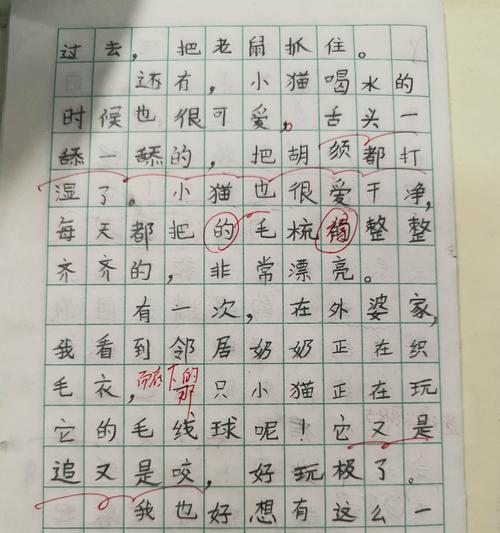 过去，把老鼠抓住。
还有，小猫喝水的
时候也很可爱。舌头一
舔一舔的，把胡须都打
湿了。小猫也很爱干净，
每天都把的毛梳整整
齐齐的，非常漂亮。
有一次，在外婆家，
我看到邻居奶奶正在织
毛衣，而底下的那只小猫正在玩
它的毛线球呢！它又是
追又是咬，好玩极了。
我也好想有这么一